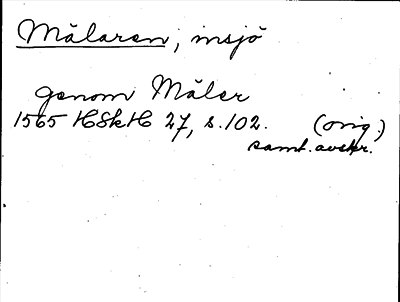 Mälaren, insjö
genom Mäler
1565 HSkH 27, s. 102. (orig.)
samt. avskr.